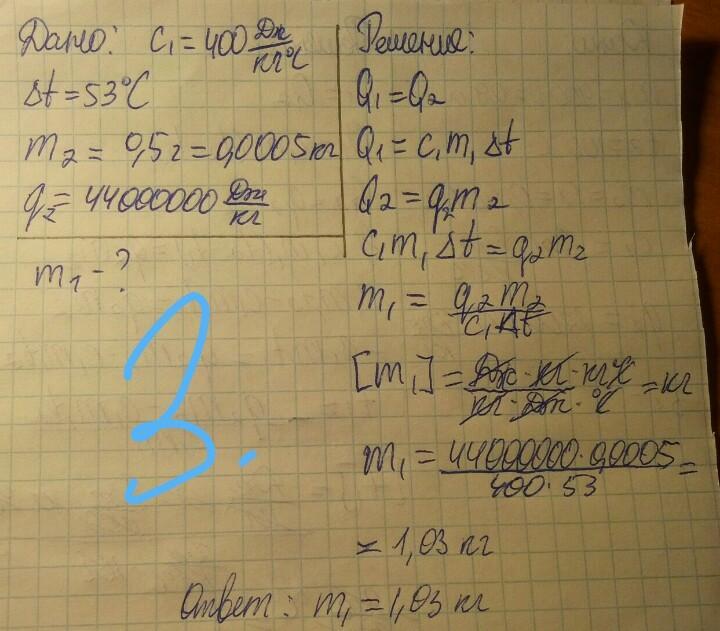 Дано: c₁ = 400 Дж/кг°C
Δt = 53°C
m₂ = 0,5 г = 0,0005 кг
q₂ = 44000000 Дж/кг
m₁ - ?
3.
Решение:
Q₁ = Q₂
Q₁ = c₁m₁Δt
Q₂ = q₂m₂
c₁m₁Δt = q₂m₂
m₁ = q₂m₂/c₁Δt
[m₁] = Дж·кг·кг°C/кг·Дж·°C = кг
m₁ = 44000000·0,0005/400·53 =
≈ 1,03 кг
Ответ: m₁ = 1,03 кг